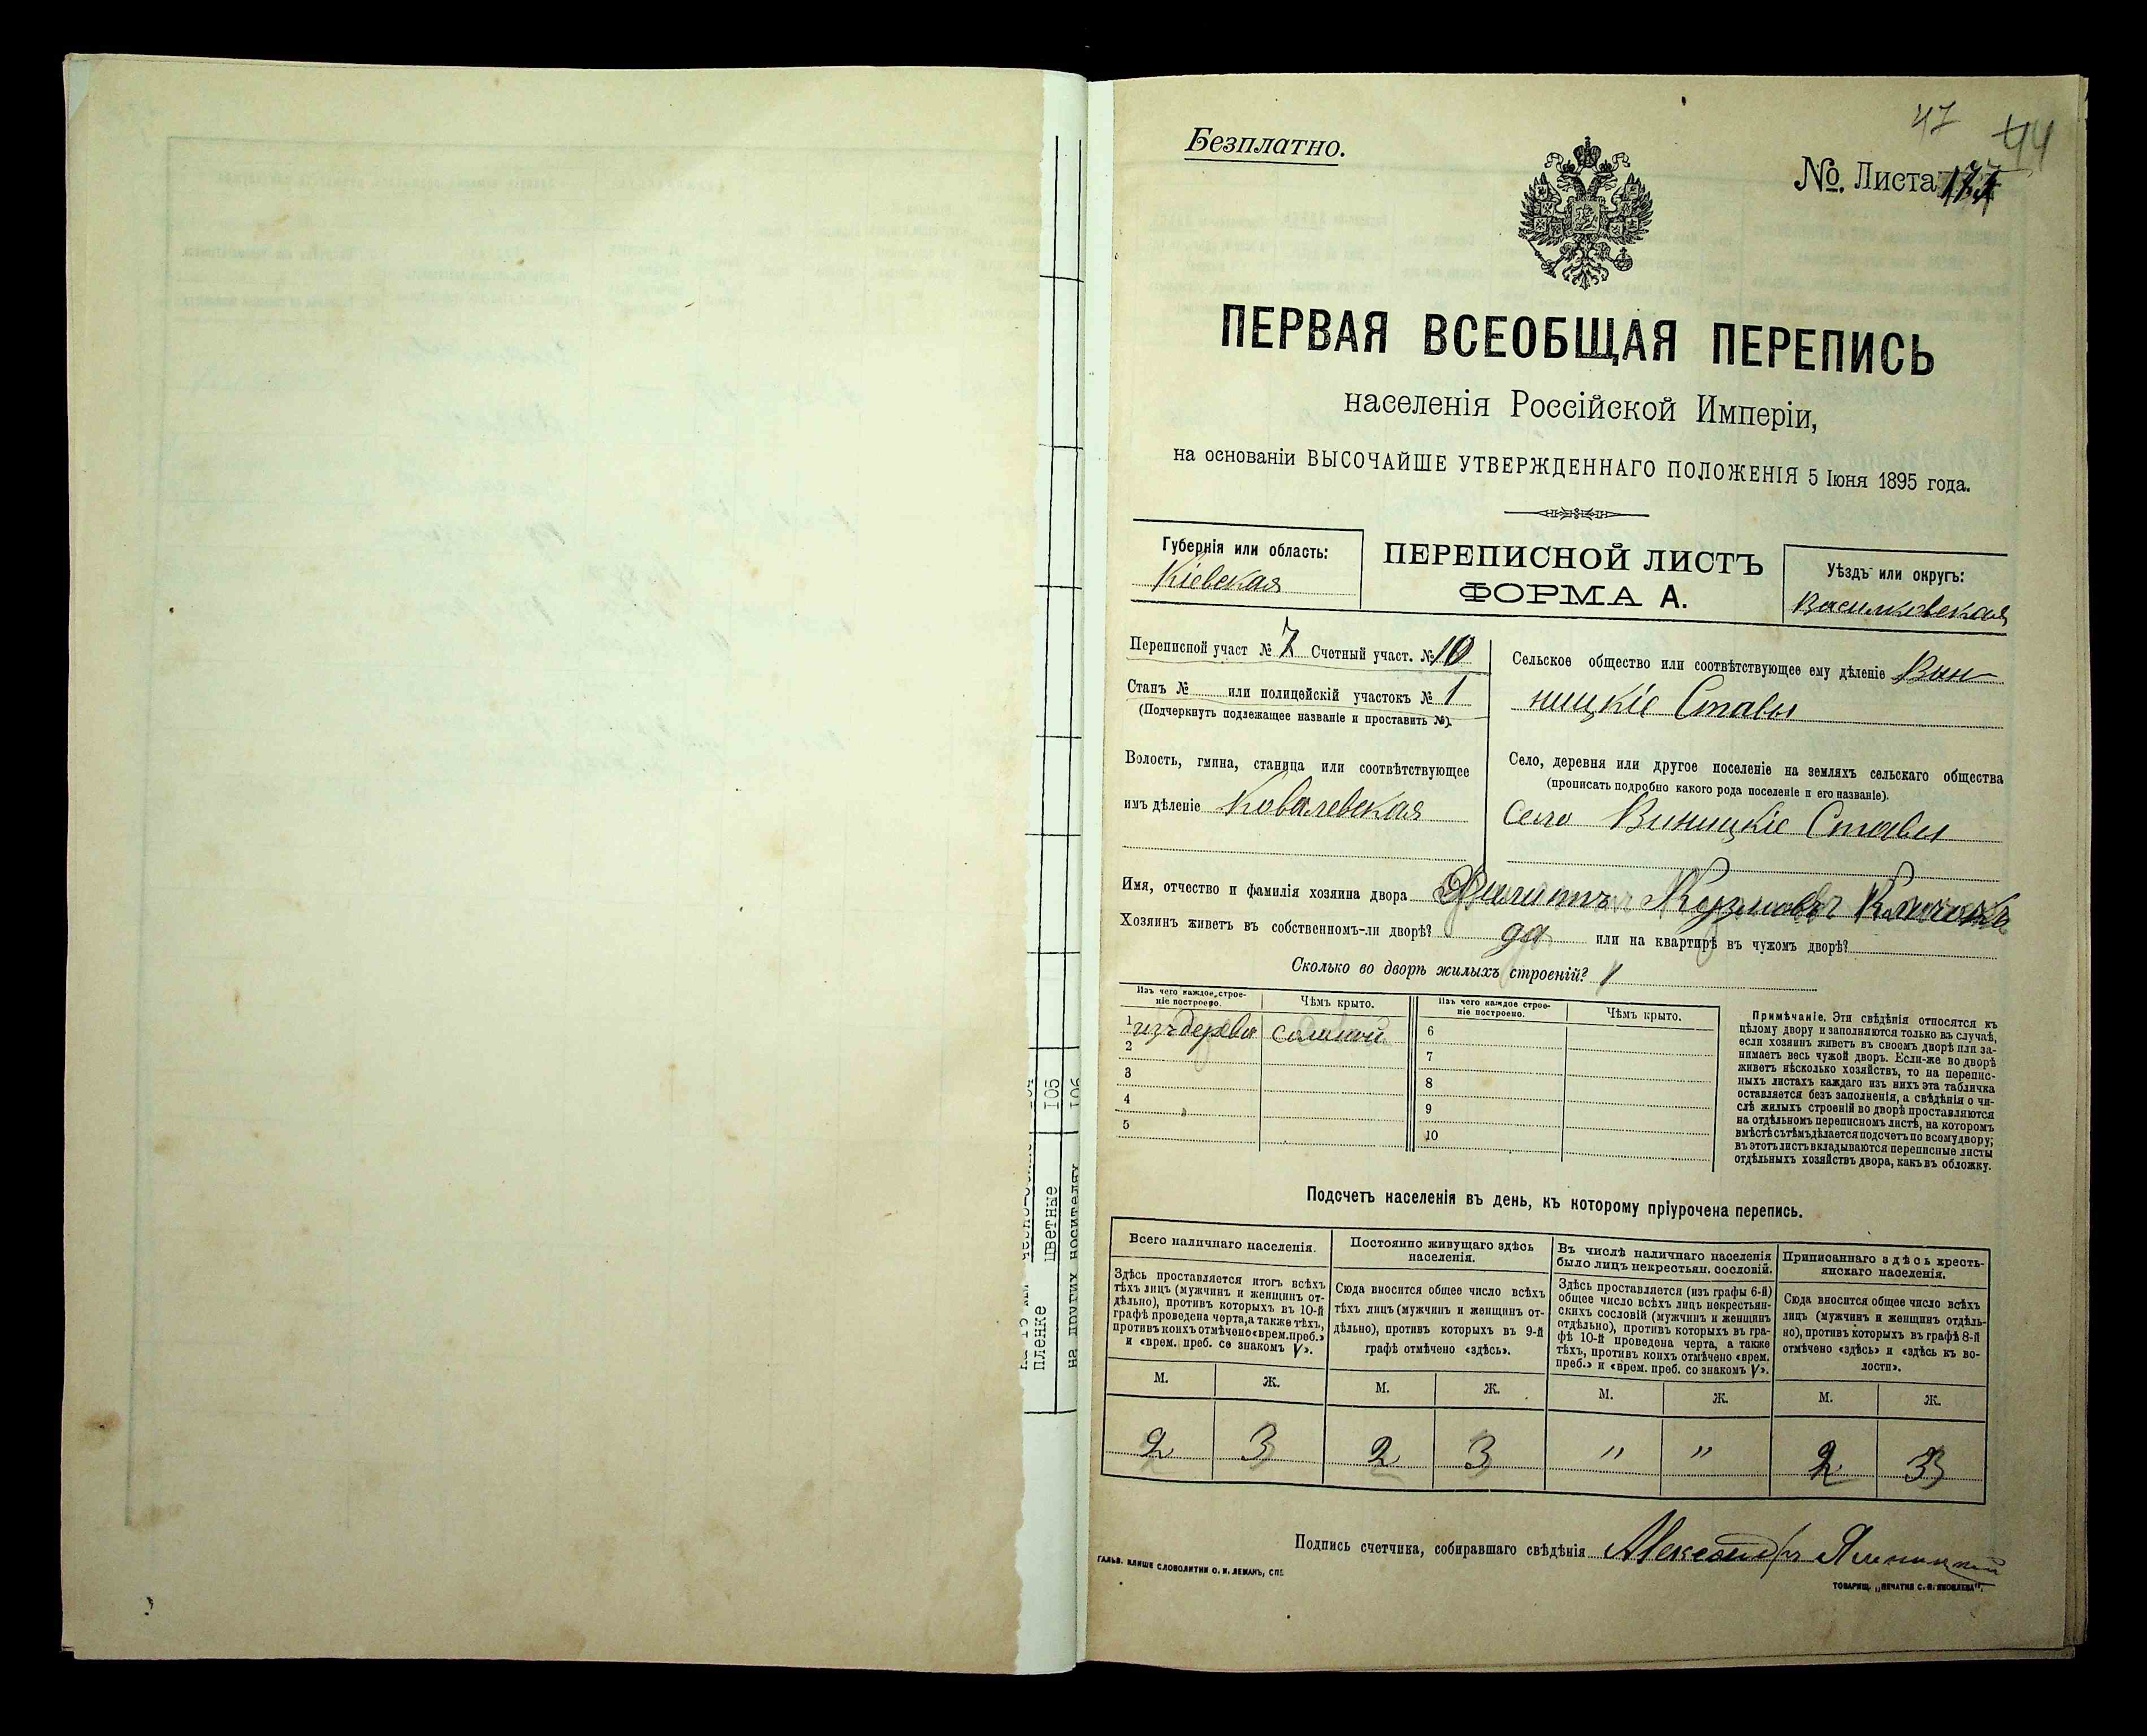 47 44
Безплатно.
№. Листа
ПЕРВАЯ ВСЕОБЩАЯ ПЕРЕПИСЬ
населенія Россійской Имперіи,
на основаніи ВЫСОЧАЙШЕ УТВЕРЖДЕННАГО ПОЛОЖЕНІЯ 5 Іюня 1895 года.
Губернія или область:
Кіевская
ПЕРЕПИСНОЙ ЛИСТЪ
ФОРМА А.
Уѣздъ или округъ:
Васильковская
Переписной участ № 7 Счетный участ. № 10
Станъ № или полицейскій участокъ № 1
(Подчеркнуть подлежащее названіе и проставить №).
Волость, гмина, станица или соотвѣтствующее
имъ дѣленіе Ковалевская
Сельское общество или соотвѣтствующее ему дѣленіе Вин-
ницкіе Ставы
Село, деревня или другое поселеніе на земляхъ сельскаго общества
(прописать подробно какого рода поселеніе и его названіе).
Село Виницкіе Ставы
Имя, отчество и фамилія хозяина двора Филиппъ Кузмовъ
Хозяинъ живетъ въ собственномъ-ли дворѣ? да или на квартирѣ въ чужомъ дворѣ?
Сколько во дворѣ жилыхъ строеній? 1
Изъ чего каждое строе-
ніе построено.
Чѣмъ крыто.
Изъ чего каждое строе-
ніе построено.
Чѣмъ крыто.
1 изъ дерева соломой 6
2 7
3 8
4 9
5 10
Примѣчаніе. Эти свѣдѣнія относятся къ
цѣлому двору и заполняются только въ случаѣ,
если хозяинъ живетъ въ своемъ дворѣ или за-
нимаетъ весь чужой дворъ. Если-же во дворѣ
живетъ нѣсколько хозяйствъ, то на перепис-
ныхъ листахъ каждаго изъ нихъ эта табличка
оставляется безъ заполненія, а свѣдѣнія о чи-
слѣ жилыхъ строеній во дворѣ проставляются
на отдѣльномъ переписномъ листѣ, на которомъ
вмѣстѣ съ тѣмъ дѣлается подсчетъ по всему двору;
въ этотъ листъ вкладываются переписные листы
отдѣльныхъ хозяйствъ двора, какъ въ обложку.
Подсчетъ населенія въ день, къ которому пріурочена перепись.
Всего наличнаго населенія.
Здѣсь проставляется итогъ всѣхъ
тѣхъ лицъ (мужчинъ и женщинъ от-
дѣльно), противъ которыхъ въ 10-й
графѣ проведена черта, а также тѣхъ,
противъ коихъ отмѣчено «врем. преб.»
и «врем. преб. со знакомъ V».
Постоянно живущаго здѣсь
населенія.
Сюда вносится общее число всѣхъ
тѣхъ лицъ (мужчинъ и женщинъ от-
дѣльно), противъ которыхъ въ 9-й
графѣ отмѣчено «здѣсь».
Въ числѣ наличнаго населенія
было лицъ некрестьян. сословій.
Здѣсь проставляется (изъ графы 6-й)
общее число всѣхъ лицъ некрестьян-
скихъ сословій (мужчинъ и женщинъ
отдѣльно), противъ которыхъ въ гра-
фѣ 10-й проведена черта, а также
тѣхъ, противъ коихъ отмѣчено «врем.
преб.» и «врем. преб. со знакомъ V».
Приписаннаго здѣсь кресть-
янскаго населенія.
Сюда вносится общее число всѣхъ
лицъ (мужчинъ и женщинъ отдѣль-
но), противъ которыхъ въ графѣ 8-й
отмѣчено «здѣсь» и «здѣсь къ во-
лости».
М. Ж. М. Ж. М. Ж. М. Ж.
2 3 2 3 " " 2 3
Подпись счетчика, собиравшаго свѣдѣнія Александръ
ГАЛЬВ. КЛИШЕ СЛОВОЛИТНИ О. И. ЛЕМАНЪ, СПБ.
ТОВАРИЩ. „ПЕЧАТНЯ С. П. ЯКОВЛЕВА".
пленке
цветные 105
на других носителях 106